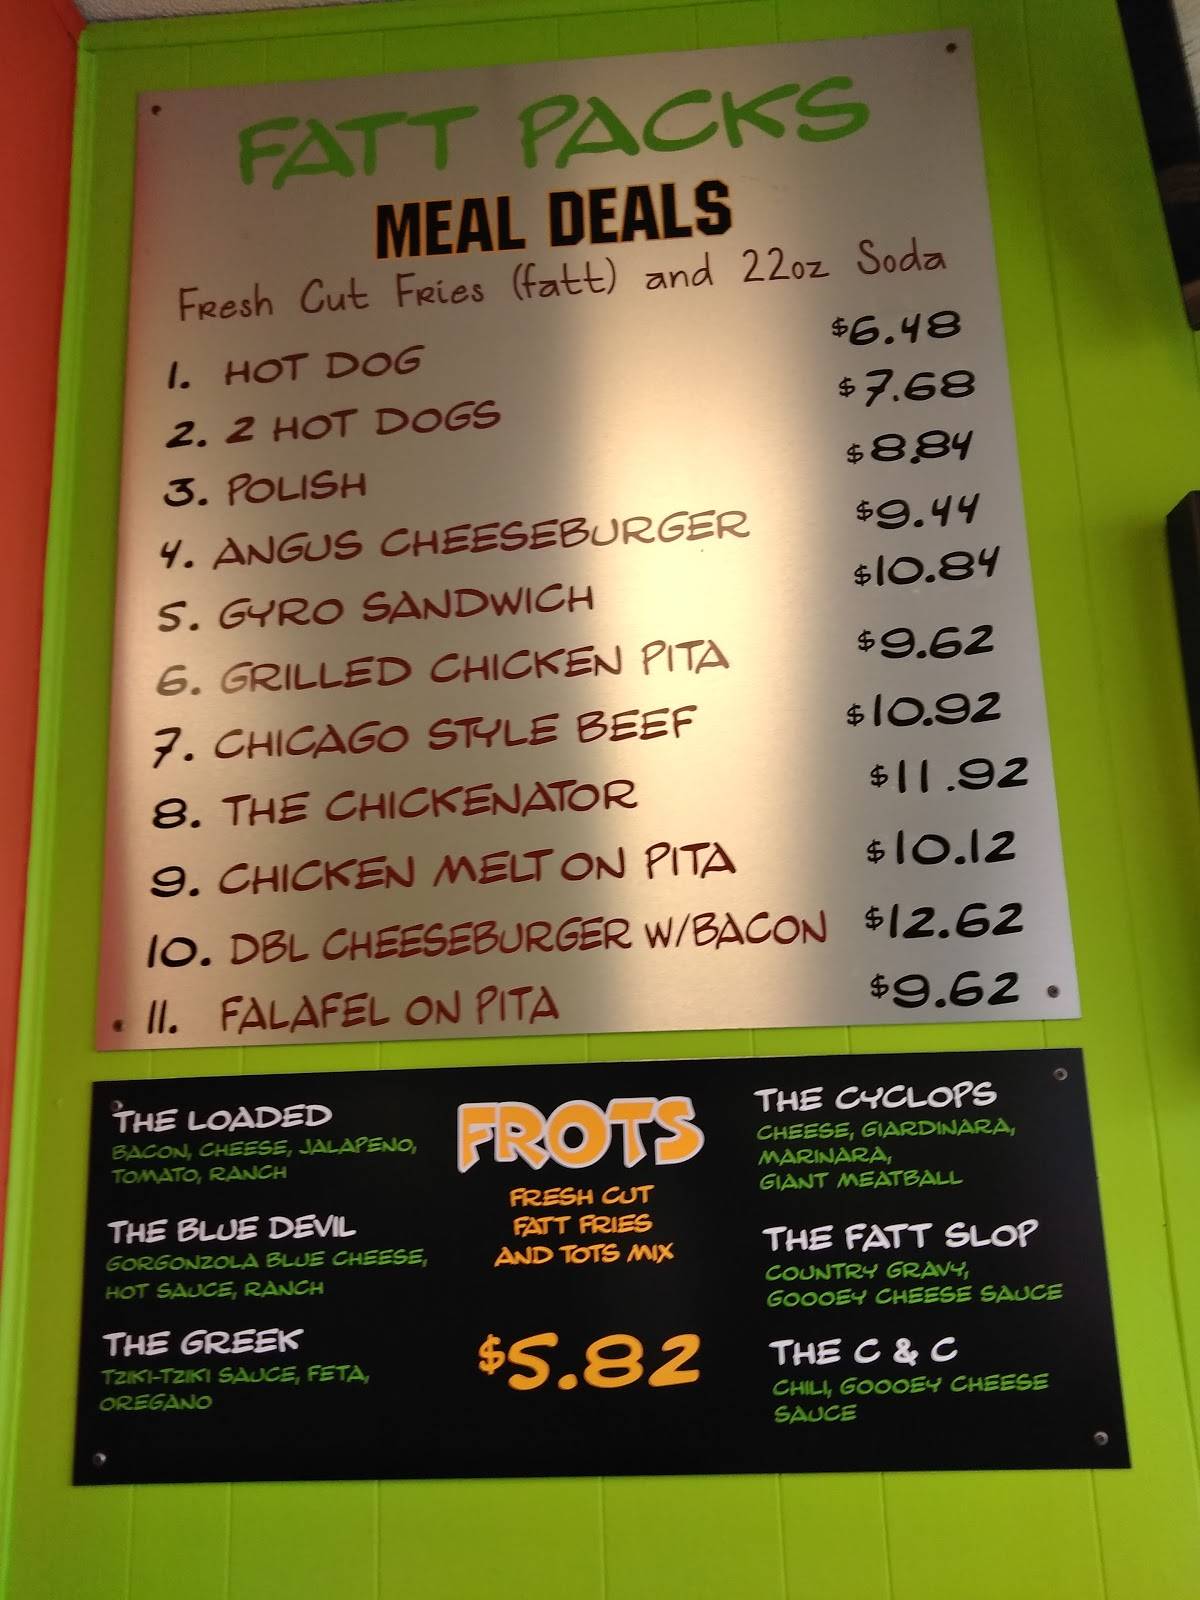 FATT PACKS
MEAL DEALS
Fresh Cut Fries (fatt) and 22oz Soda
1. HOT DOG $6.48
2. 2 HOT DOGS $7.68
3. POLISH $8.84
4. ANGUS CHEESEBURGER $9.44
5. GYRO SANDWICH $10.84
6. GRILLED CHICKEN PITA $9.62
7. CHICAGO STYLE BEEF $10.92
8. THE CHICKENATOR $11.92
9. CHICKEN MELT ON PITA $10.12
10. DBL CHEESEBURGER W/BACON $12.62
11. FALAFEL ON PITA $9.62
THE LOADED
BACON, CHEESE, JALAPENO,
TOMATO, RANCH
THE BLUE DEVIL
GORGONZOLA BLUE CHEESE,
HOT SAUCE, RANCH
THE GREEK
TZIKI-TZIKI SAUCE, FETA,
OREGANO
FROTS
FRESH CUT
FATT FRIES
AND TOTS MIX
$5.82
THE CYCLOPS
CHEESE, GIARDINARA,
MARINARA,
GIANT MEATBALL
THE FATT SLOP
COUNTRY GRAVY,
GOOOEY CHEESE SAUCE
THE C & C
CHILI, GOOOEY CHEESE
SAUCE